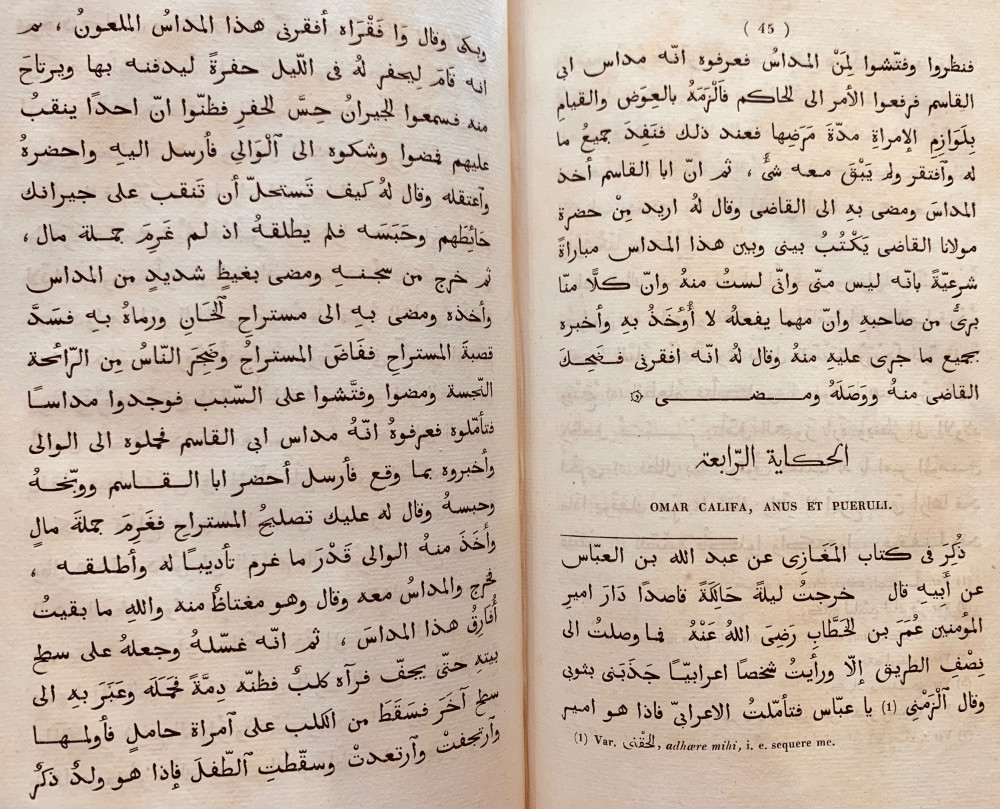 وبكى وقال وَا فَقْرَاه أفقرنى هذا المداسُ الملعونُ ، ثم
انه قَامَ لِيحفر لهُ فى اللّيل حفرةً ليدفنه بها ويرتاحَ
منه فسمعوا الجيرانُ حِسَّ الحفرِ فظنّوا انّ احدًا ينقبُ
عليهم فمضوا وشكوه الى ٱلْوَالِى فأرسل اليهِ واحضرهُ
وٱعتقله وقال لهُ كيف تَستحلّ أن تَنقب على جيرانك
حَائِطَهم وحَبَسَه فلم يطلقهُ اذ لم غَرِمَ جملة مال ،
ثم خرج من سجنـهِ ومضى بغيظٍ شديدٍ من المداس
وأخذه ومضى بهِ الى مستراح ٱلْخَانِ ورماهُ بهِ فسَدَّ
قصبةَ المستراحِ ففَاضَ المستراحُ وضَجِرَ النّاسُ مِن الرّائحة
النّجسة ومضوا وفتَّشوا على السّبب فوجدوا مداسـًا
فتأمّلوه فعرفوهُ انّهُ مداس ابى القاسم فحملوه الى الوالى
وأخبروه بما وقع فأرسل أحضر ابا القـاسم ووبّخهُ
وحبسهُ وقال له عليك تصليحُ المستراحِ فغَرِمَ جملةَ مالٍ
وأَخَذَ منهُ الوالى قَدْرَ ما غرم تأديبًا له وأطلـقـه ،
فخرج والمداسُ معه وقال وهو مغتاظٌ منه واللهِ ما بقيتُ
أُفَارِقُ هذا المداسَ ، ثم انّه غسّلهُ وجعلهُ على سطحِ
بيتهِ حتّى يجفّ فرآه كلبٌ فظنّه دِمَّةً فحَمَلَه وعَبَرَ بهِ الى
سطحٍ آخَرَ فسَقَطَ من الكلب على ٱمراةِ حاملٍ فأولمـهـا
وٱرتجفتْ وٱرتعدتْ وسقّطتِ ٱلطّفلَ فإذا هو ولدٌ ذكرٌ
( 45 )
فنظروا وفتّشوا لِمَنْ المداسُ فعرفوه انّه مداس ابى
القاسم فرفعوا الأمر الى الحاكم فألْزَمَهُ بالعِوَضِ والقيامِ
بِلَوَازِمِ الإمراةِ مدّةَ مَرَضِها فعند ذلك فنَفِدَ جميعُ ما
له وٱفتقر ولم يَبْقَ معه شىٌٔ ، ثم انّ ابا القاسم أخذ
المداسَ ومضى بهِ الى القاضى وقال لهُ اريد مِنْ حضرة
مولانا القاضى يَكْتُبُ بينى وبين هذا المداس مباراةً
شرعيّةً بأنّه ليس منّى وانّى لستُ منهُ وانّ كـلًّا منّا
برىٌٔ من صاحبهِ وانّ مهما يفعلهُ لا أُؤُخَذُ بهِ وأخبره
بجميع ما جرى عليهِ منهُ وقال لهُ انّه افقرنى فـضَحِـكَ
القاضى منهُ ووَصَلَهُ ومــضــى ۞
الحكاية الرّابعة
OMAR CALIFA, ANUS ET PUERULI.
ذُكِرَ فى كتاب المَغَازِى عن عبد الله بن العبّاس
عن أَبِيه قال خرجتُ ليلةً حَالِكَةً قاصدًا دَارَ اميرِ
المؤمنين عُمَرَ بن الخَطَّابِ رَضِىَ اللهُ عَنْهُ فما وصلتُ الى
نِصْفِ الطريق إلّا ورأيتُ شخصًا اعرابيّـًا جَذَبَنى بثوبى
وقال ٱلْزَمْنِى (1) يا عبّاس فتأمّلتُ الاعرابىّ فاذا هو امير
(1) Var. الحقنى, adhære mihi, i. e. sequere me.